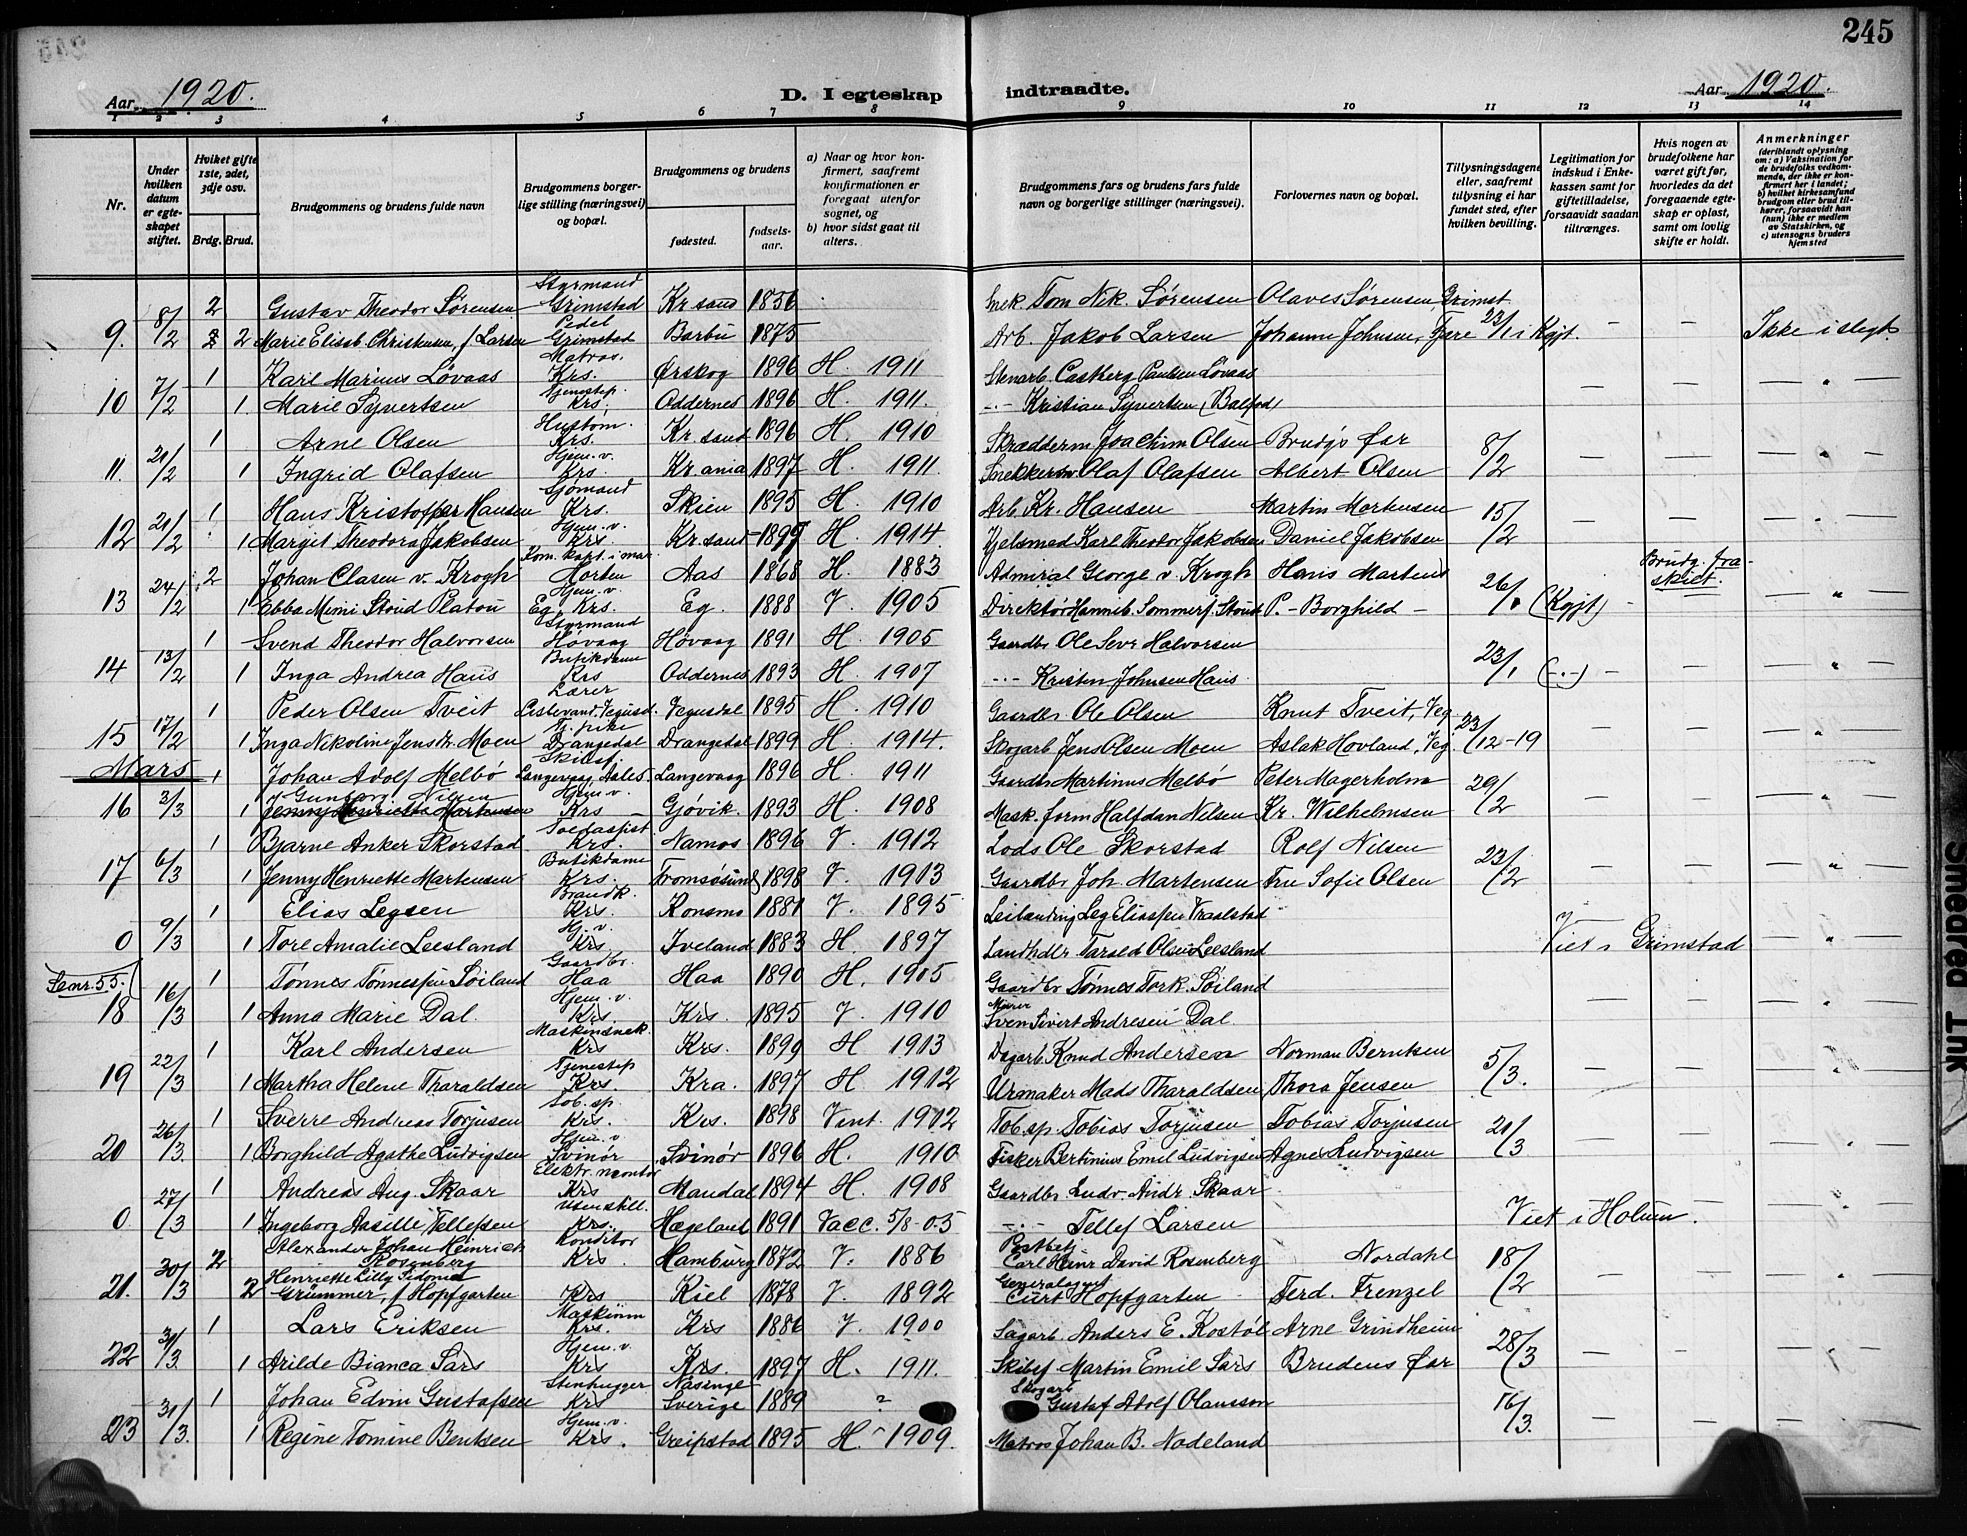 245
Aar 1920. D. I egteskap indtraadte. Aar 1920.
1 2 3 4 5 6 7 8 9 10 11 12 13 14
Nr.
Under hvilken datum er egteskapet stiftet.
Hvilket gifte 1ste, 2det, 3dje osv.
Brdg. Brud.
Brudgommens og brudens fulde navn
Brudgommens borgerlige stilling (næringsvei) og bopæl.
Brudgommens og brudens
fødested.
fødselsaar.
a) Naar og hvor konfirmert, saafremt konfirmationen er foregaat utenfor sognet, og
b) hvor sidst gaat til alters.
Brudgommens fars og brudens fars fulde navn og borgerlige stillinger (næringsvei).
Forlovernes navn og bopæl.
Tillysningsdagene eller, saafremt tillysning ei har fundet sted, efter hvilken bevilling.
Legitimation for indskud i Enkekassen samt for giftetilladelse, forsaavidt saadan tiltrænges.
Hvis nogen av brudefolkene har været gift før, hvorledes da det foregaaende egteskap er opløst, samt om lovlig skifte er holdt.
Anmerkninger
(deriblandt oplysning om: a) Vaksination for de brudefolks vedkommende, der ikke er konfirmert her i landet; b) hvilket kirkesamfund brudgom eller brud tilhører, forsaavidt han (hun) ikke er medlem av Statskirken, og c) utensogns bruders hjemsted
Styrmand
2 Gustav Theodor Sørensen Grimstad Kr.sand 1856 Snek. Tom Nik. Sørensen Olaves Sørensen, Grimst.
9. 8/2 2 Marie Elisab. Christensen, f. Larsen Pedel Grimstad Barbu 1875 Arb. Jakob Larsen Johanne Johnsen, Fjære 23/1 i Kgjt. — — Ikke i slegt.
1 Karl Marius Løvaas Matros. Krs. Ørskog 1896 H. 1911 Stenarb. Castberg Paulsen Løvaas
10 7/2 1 Marie Syvertsen Tjenestep. Krs. Oddernes 1896 H. 1911. -"- Kristian Syvertsen (Balfod) — — " —
1 Arne Olsen Krs. Kr.sand 1896 H. 1910 Skrædderm. Joachim Olsen Brudg's far
11. 21/2 1 Ingrid Olafsen Hjem. v. Krs. Kr.ania 1897 H. 1911. Snekkersv. Olaf Olafsen Albert Olsen 8/2 — — " —
1 Hans Kristoffer Hansen Sjømand Krs. Skien 1895 H. 1910 Arb. Kr. Hansen Martin Mortensen
12 21/2 1 Margit Theodora Jakobsen Hjem. v. Krs. Kr.sand 1897 H. 1914. Hjelsmed Karl Theodor Jakobsen Daniel Jakobsen 15/2 — — " —
2 Johan Clasen v. Krogh Kom. kapt. i mar. Horten Aas 1868 H. 1883 Admiral George v. Krogh Hans Martens Brudg. fraskilt.
13 24/2 1 Ebba Mimi Stoud Platou Hjem. v. Eg, Krs. Eg. 1888 V. 1905 Direktør Hannib. Sommerf. Stoud P. — Borghild — 26/1 (Kgjt) - " —
1 Svend Theodor Halvorsen Styrmand Høvaag Høvaag 1891 H. 1905 Gaardbr. Ole Sevr. Halvorsen
14 13/2 1 Inga Andrea Haus Butikdame Krs Oddernes 1893 H. 1907 -"- Kristen Johnsen Haus. 23/1 (-"-) — — " —
1 Peder Olsen Tveit Lærer Lislevand, Vegusd. Vegusdal 1895 H. 1910 Gaardbr. Ole Olsen Knut Tveit, Veg.
15 17/2 1 Inga Nikoline Jensdt. Moen Drangedal Drangedal 1899 H. 1914. Skogarb. Jens Olsen Moen Aslak Hovland, Veg. 23/12-19 — — " —
Mars 1 Johan Adolf Melbø Skibsf. Langevaag, Aales. Langevaag 1896 H. 1911 Gaardbr. Martinus Melbø Peter Magerholm
16 3/3 1 Gunborg Nilsen Jenny Henriette Martensen Hjem. v. Krs Gjøvik. 1893 H. 1908 Mask. form. Halfdan Nilsen Kr. Wilhelmsen 29/2 — — " —
1 Bjarne Anker Skorstad Toldassist. Krs. Namsos 1896 V. 1912 Lods Ole Skorstad Rolf Nilsen
17 6/3 1 Jenny Henriette Martensen Butikdame Krs. Tromsøsund 1898 V. 1913 Gaardbr. Joh. Martensen Fru Sofie Olsen 23/2 — — " —
1 Elias Legsen Brandk. Krs. Konsmo 1881 V. 1895 Leilending Leg Eliassen Vraalstad
0 9/3 1 Tore Amalie Leesland Hj. v. Krs. Iveland 1883 H. 1897 Landhdlr. Tarald Olsen Leesland Viet i Grimstad " —
Se nr. 55. 1 Tønnes Tønnessen Søiland Gaardbr. Haa Haa 1890 H. 1905 Gaardbr. Tønnes Tork. Søiland
18 16/3 1 Anna Marie Dal. Hjem. v. Krs Krs. 1895 V. 1910 Murer Sven Sivert Andresen Dal. — — " —
1 Karl Andersen Maskinsnek. Krs Krs. 1899 H 1913 Dagarb. Knud Andersen Norman Berntsen
19 22/3 1 Martha Helene Tharaldsen Tjenestep Krs. Kra. 1897 H. 1912 Urmaker Mads Tharaldsen Thora Jensen 5/3. — — " —
1 Sverre Andreas Torjusen Tob. sp. Krs. Krs. 1898 Vint. 1912 Tob. sp. Tobias Torjusen Tobias Torjusen
20 26/3. 1 Borghild Agathe Ludvigsen Hjem. v Svinør Svinør 1896 H. 1910 Fisker Bertinius Emil Ludvigsen Agnes Ludvigsen 21/3 — — " —
1 Andreas Aug. Skaar Elektr. montør Krs Mandal 1894 H. 1908 Gaardbr. Ludv. Andr. Skaar
0 27/3 1 Ingeborg Aasille Tellefsen Krs. Hægeland 1891 Vacc. 5/8-05 -"- Tellef Larsen Viet i Holum. " —
2 Alexander Johan Heinrich Rosenberg Konditor Krs. Hamburg 1872 V. 1886 Postbetj. Carl Heinr. David Rosenberg Nordahl
21. 30/3 2 Henriette Lilly Sidonie Grümmer, f. Hopfgarten Krs Kiel 1878 V. 1892 Generalagent Curt Hopfgarten Ferd. Frenzel 18/2 — — " —
1 Lars Eriksen Maskinm Krs. Krs 1886 V. 1900 Sagarb. Anders E. Kostøl Arne Grindheim
22 31/3 1 Arilde Bianca Sars Hjem. v. Krs Krs. 1897 H. 1911. Skibsf. Martin Emil Sars Brudens far 28/3 — — " —
1 Johan Edvin Gustafsen Stenhugger Krs Nasinge Sverige 1889 ? Skogarb Gustaf Adolf Olausson
23 31/3. 1 Regine Tomine Bentsen Hjem. v. Krs. Greipstad 1895 H. 1909. Matros Johan B. Nodeland 16/3. — — " —
Smeared Ink